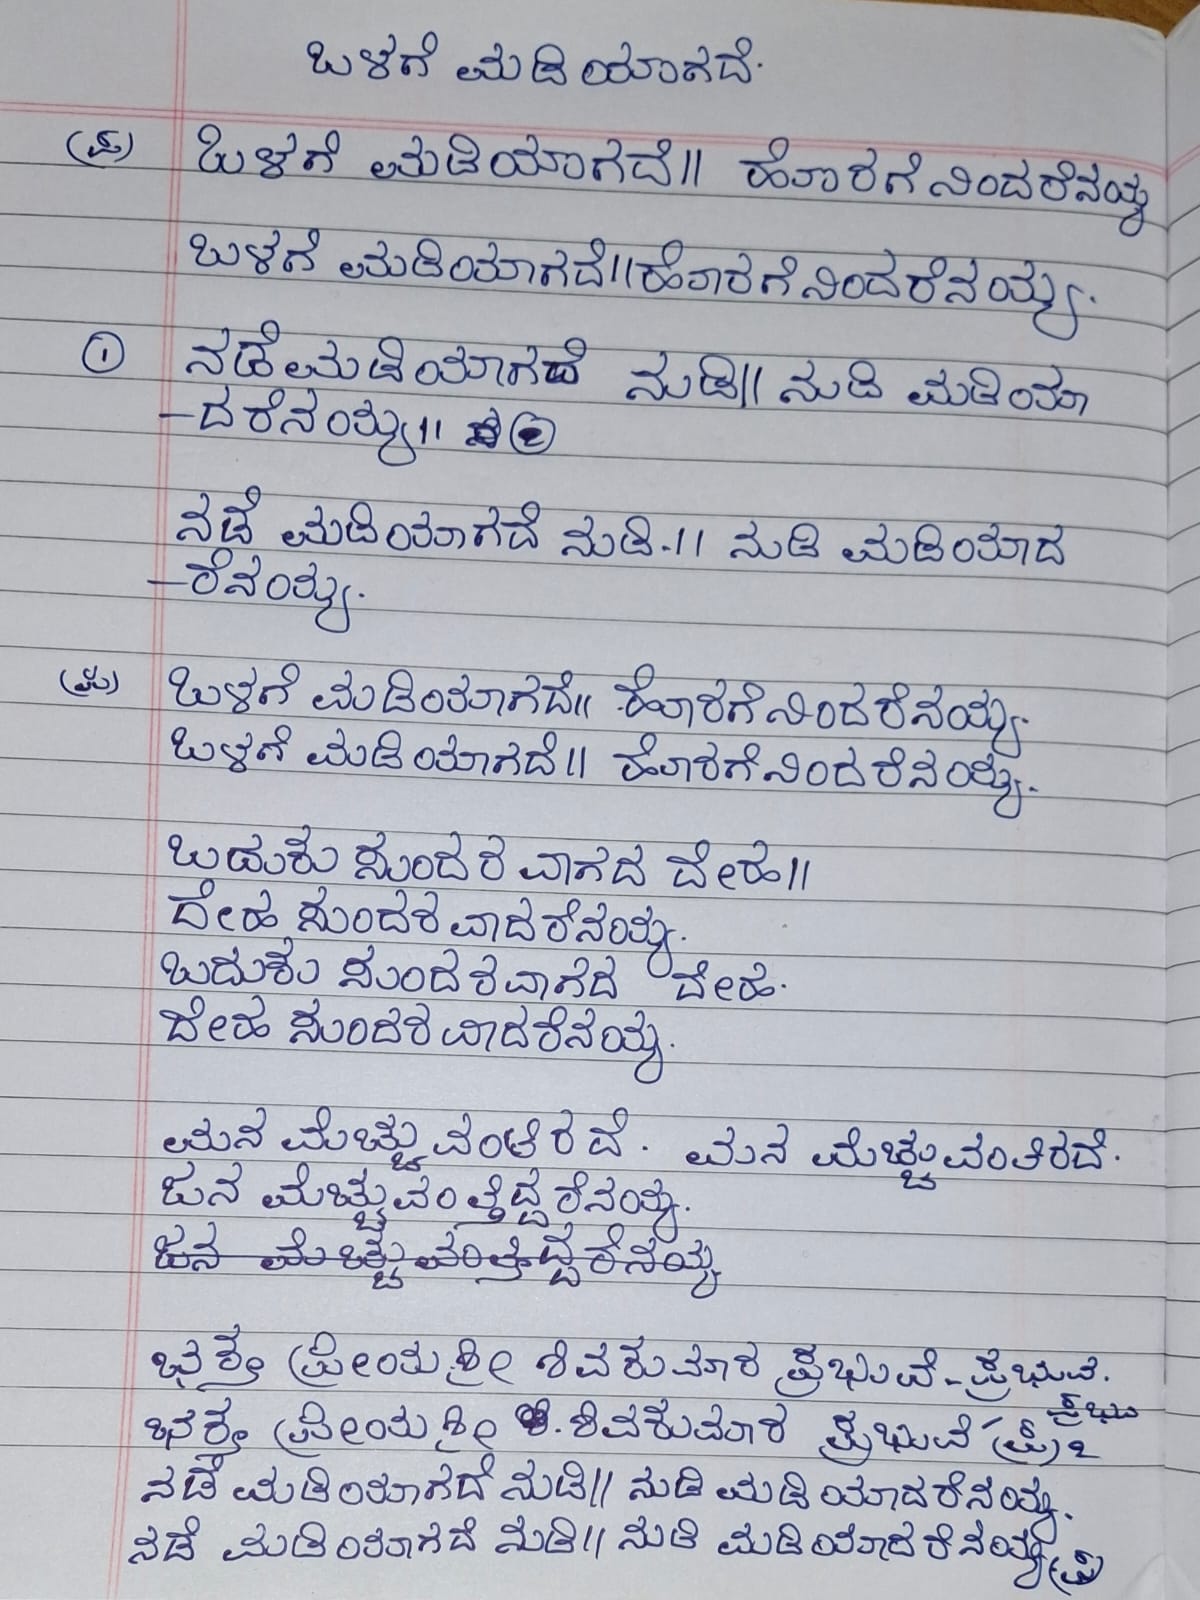 ಒಳಗೆ ಮಡಿಯಾಗದೆ.
(ಪ) ಒಳಗೆ ಮಡಿಯಾಗದೆ|| ಹೊರಗೆ ನಿಂದರೆನಯ್ಯ
ಒಳಗೆ ಮಡಿಯಾಗದೆ||ಹೊರಗೆ ನಿಂದರೆನಯ್ಯ.
① ನಡೆಮಡಿಯಾಗದೆ ನುಡಿ|| ನುಡಿ ಮಡಿಯಾ
-ದರೆನಯ್ಯ|| ②
ನಡೆ ಮಡಿಯಾಗದೆ ನುಡಿ.|| ನುಡಿ ಮಡಿಯಾದ
-ರೆನಯ್ಯ.
(ಪ) ಒಳಗೆ ಮಡಿಯಾಗದೆ|| ಹೊರಗೆ ನಿಂದರೆನಯ್ಯ.
ಒಳಗೆ ಮಡಿಯಾಗದೆ|| ಹೊರಗೆ ನಿಂದರೆನಯ್ಯ.
ಬದುಕು ಸುಂದರವಾಗದ ದೇಹ||
ದೇಹ ಸುಂದರವಾದರೆನಯ್ಯ.
ಬದುಕು ಸುಂದರವಾಗದ ದೇಹ.
ದೇಹ ಸುಂದರವಾದರೆನಯ್ಯ.
ಮನ ಮೆಚ್ಚುವಂತಿರದೆ. ಮನ ಮೆಚ್ಚುವಂತಿರದೆ.
ಜನ ಮೆಚ್ಚುವಂತ್ತಿದ್ದರೆನಯ್ಯ.
ಜನ ಮೆಚ್ಚುವಂತ್ತಿದ್ದರೆನಯ್ಯ
ಭಕ್ತಿ ಪ್ರೀಯ ಶ್ರೀ ಶಿವಕುಮಾರ ಪ್ರಭುವೆ-ಪ್ರಭುವೆ.
ಭಕ್ತಿ ಪ್ರೀಯ ಶ್ರೀ ಶಿವಕುಮಾರ ಪ್ರಭುವೆ ಪ್ರಭುವೆ (ಪ್ರ) ೨
ನಡೆ ಮಡಿಯಾಗದೆ ನುಡಿ|| ನುಡಿ ಮಡಿಯಾದರೆನಯ್ಯ.
ನಡೆ ಮಡಿಯಾಗದೆ ನುಡಿ|| ನುಡಿ ಮಡಿಯಾದರೆನಯ್ಯ (ಪ)